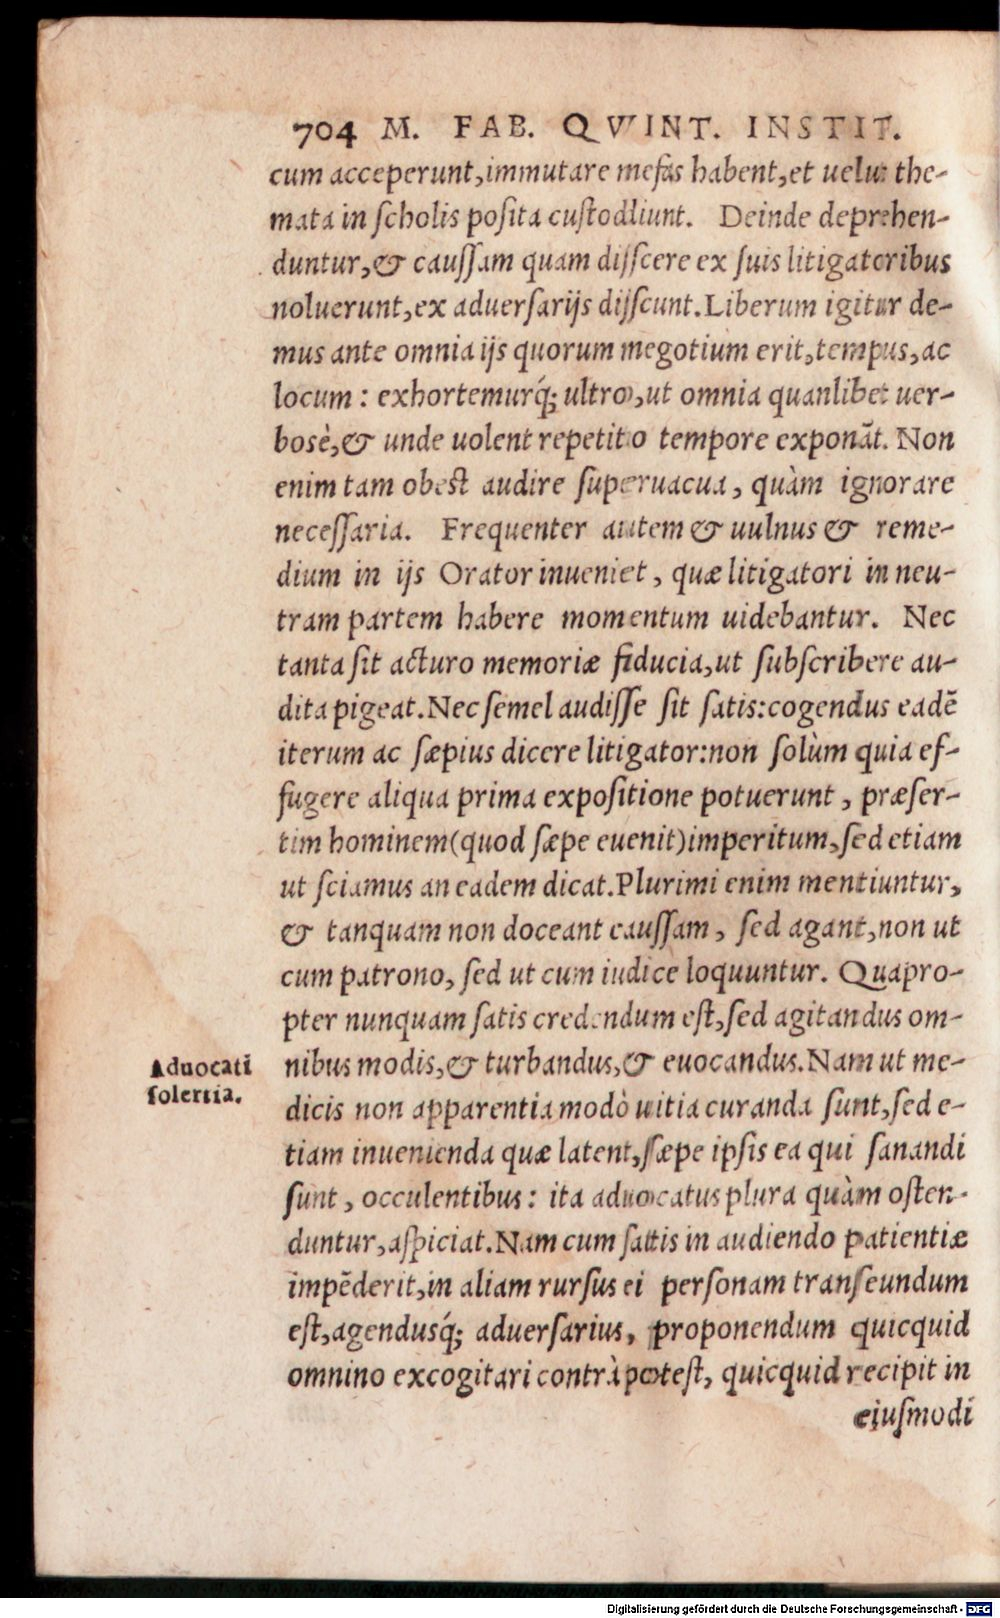 704 M. FAB. QVVINT. INSTIT.
cum acceperunt, immutare nefas habent, et uelut the-
mata in scholis posita custodiunt. Deinde deprehen-
duntur, & caussam quam discere ex suis litigatoribus
noluerunt, ex aduersarijs discunt. Liberum igitur de-
mus ante omnia ijs quorum negotium erit, tempus, ac
locum : exhortemurq́; ultro, ut omnia quanlibet uer-
bosè, & unde uolent repetito tempore exponãt. Non
enim tam obest audire superuacua, quàm ignorare
necessaria. Frequenter autem & uulnus & reme-
dium in ijs Orator inueniet, quæ litigatori in neu-
tram partem habere momentum uidebantur. Nec
tanta sit acturo memoriæ fiducia, ut subscribere au-
dita pigeat. Nec semel audisse sit satis: cogendus eadẽ
iterum ac sæpius dicere litigator: non solùm quia ef-
fugere aliqua prima expositione potuerunt, præser-
tim hominem (quod sæpe euenit) imperitum, sed etiam
ut sciamus an eadem dicat. Plurimi enim mentiuntur,
& tanquam non doceant caussam, sed agant, non ut
cum patrono, sed ut cum iudice loquuntur. Quapro-
pter nunquam satis credendum est, sed agitandus om-
Aduocati
solertia.
nibus modis, & turbandus, & euocandus. Nam ut me-
dicis non apparentia modò uitia curanda sunt, sed e-
tiam inuenienda quæ latent, sæpe ipsis ea qui sanandi
sunt, occulentibus : ita aduocatus plura quàm osten-
duntur, aspiciat. Nam cum satis in audiendo patientiæ
impẽderit, in aliam rursus ei personam transeundum
est, agendusq́; aduersarius, proponendum quicquid
omnino excogitari contrà potest, quicquid recipit in
eiusmodi
Digitalisierung gefördert durch die Deutsche Forschungsgemeinschaft - DFG